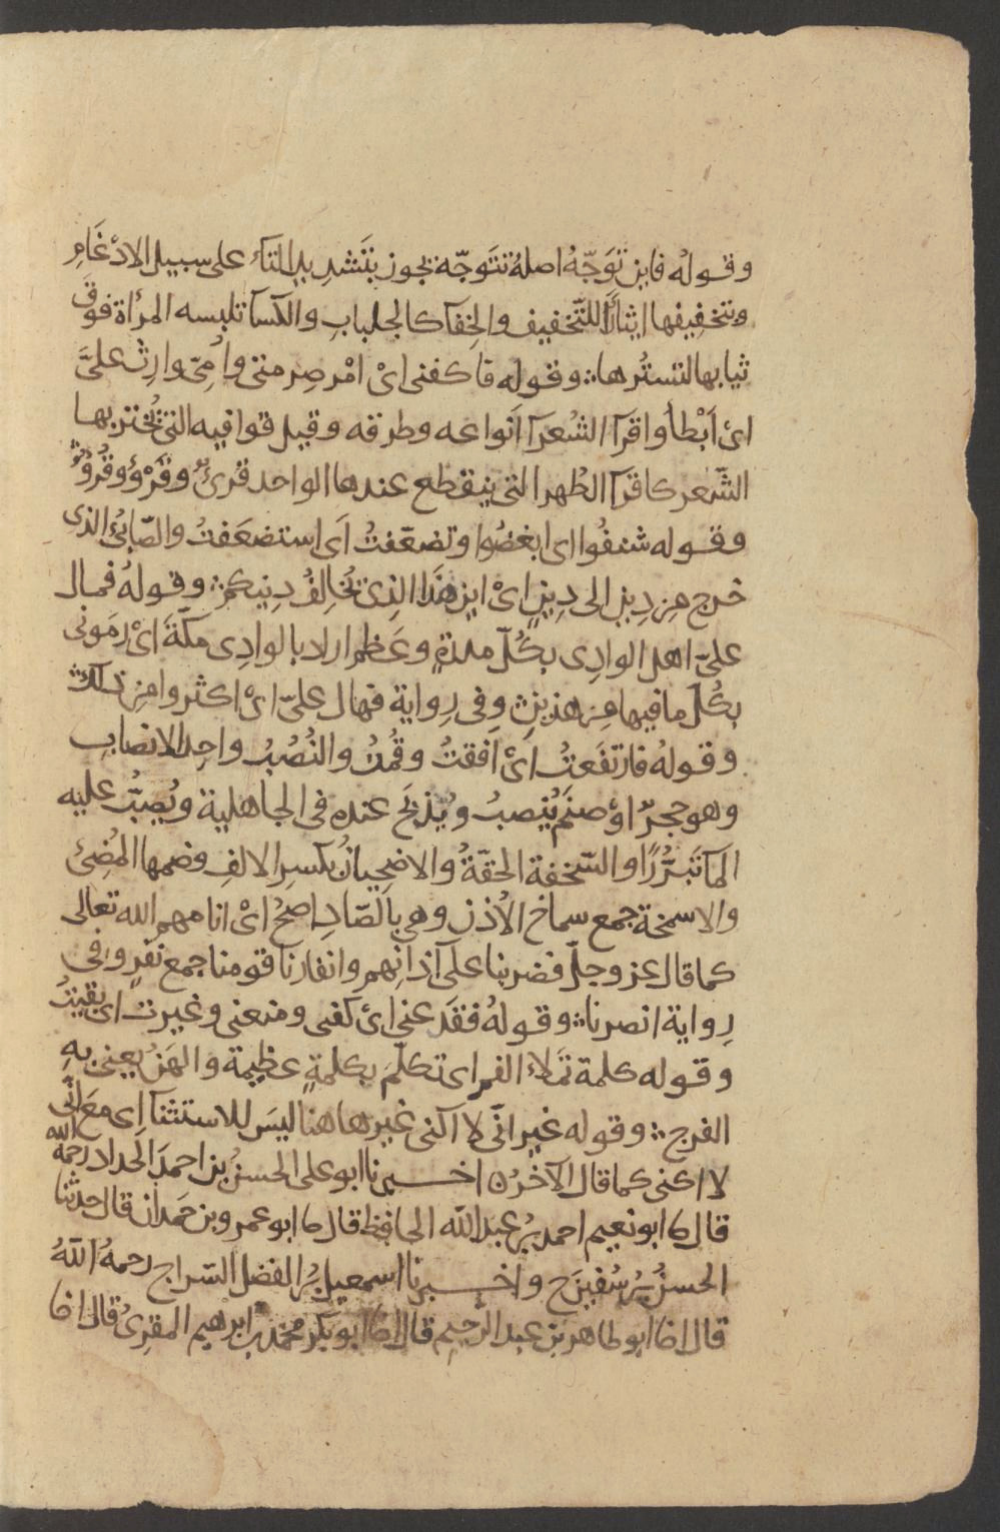 وقوله فاين تَوَجّهُ اصلهُ تتَوجّه يجوز بتَشديد التآء على سبيل الادْغَامِ
وتخفِيفها ايثارًا للتّخفيف والخِفآ كالجلبابِ والكسآ تلبسه المرأة فوقَ
ثيابها لتستُرها؛ وقوله فاكفنى اىْ امْر صِرمتى وامُِّى وارِثْ علىَّ
اىْ اَبْطأ واقرآ الشُعرآ اَنواعه وطرقه وقيل قوافيه التى تُختتر بها
الشّعر كاقرآ الطُهر التى ينقطع عندها الواحد قُرئٌ وقَرْؤٌ وقُرُؤٌ
وقوله شنفُوا اى ابغضُوا وتضعّفتُ اَى استضعَفتُ والصّابئُ الذى
خرج مِن دِينٍ الى دِينٍ اىْ اين هَذَا الذِى تُخالِفُ دِينِكم؛ وقولهُ فمال
علىّ اهل الوادِى بكُلّ مدرةٍ وعَظم اراد بالوادِى مكّةَ اىْ رمَونى
بكُلّ ما فيها مِن هذينِ وفى رِواية فمال علىّ اىْ اكثروا مِن ذلك
وقولهُ فارتفَعتُ اىْ اَفقتُ وقُمتُ والنُصُبُ واحِد الانصابِ
وهو حجرٌ اوْ صنَم يُنصبُ ويُذبَح عنده فى الجاهلية ويُصبُّ عليه
المآ تَبَرُّرًا والسّخفة الخفّةُ والاضحِيانُ بكسرِ الالفِ وضمها المُضِئ
والاسمخة جمع سماخ الاُذن وهى بالصّادِ اصحُّ اىْ انامهم الله تعالى
كما قال عز وجلّ فضربنا على آذانِهم وانفارنا قومنا جمع نفَرٍ وفى
رواية انصرنا؛ وقولهُ فقَدعنى اىْ كفنى ومنعنى وغبرت اى بقيتُ
وقوله كلمة تَملاُ الفم اى تكلّمَ بكلمةٍ عظِيمة والهَنُ يعنى بهِ
الفرج؛ وقوله غير انّى لا اكنى غير هاهنا ليسَ للاستثنآ اى معَ انّى
لا اكنى كما قال الآخرُن اخبرنا ابو على الحسنُ بن احمدَ الحداد رحمهُ الله
قال ٮا ابو نعيم احمد بنُ عبد الله الحافِظ قال ٮا ابو عمرو بن حَمدان قال حدثنا
الحسنُ بنُ سُفينَ ح واخبرنا اسمعيل بنُ الفضل السّراج رحمهُ اللّهُ
قال اٮا ابو طاهر بن عبد الرحيم قال اٮا ابو بكر محمد بن ابرهيم المقرىُ قال اٮا